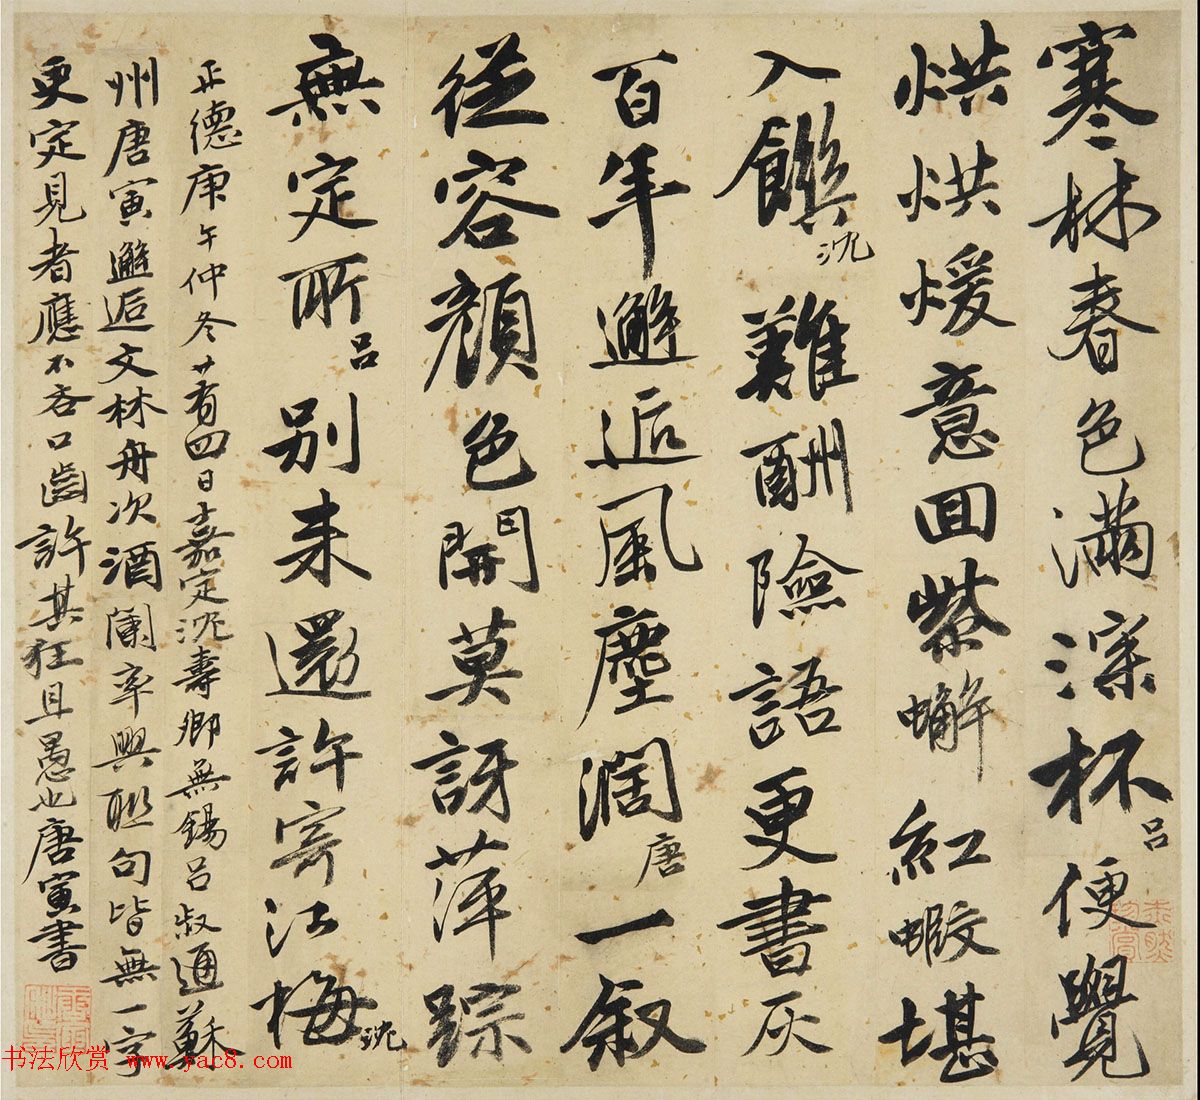 寒林春色滿深杯呂便覺
烘烘煖意回紫蠏紅蝦堪
入饌沈難酬險語更書灰
百年邂逅風塵濶唐一叙
從容顔色開莫訝萍踪
無定所呂別來還許寄江梅沈
正德庚午仲冬廿有四日嘉定沈壽卿無錫呂叔通蘇
州唐寅邂逅文林舟次酒闌率興聯句皆無一字
更定見者應不吝口齒許其狂且愚也唐寅書
书法欣赏 www.yac8.com